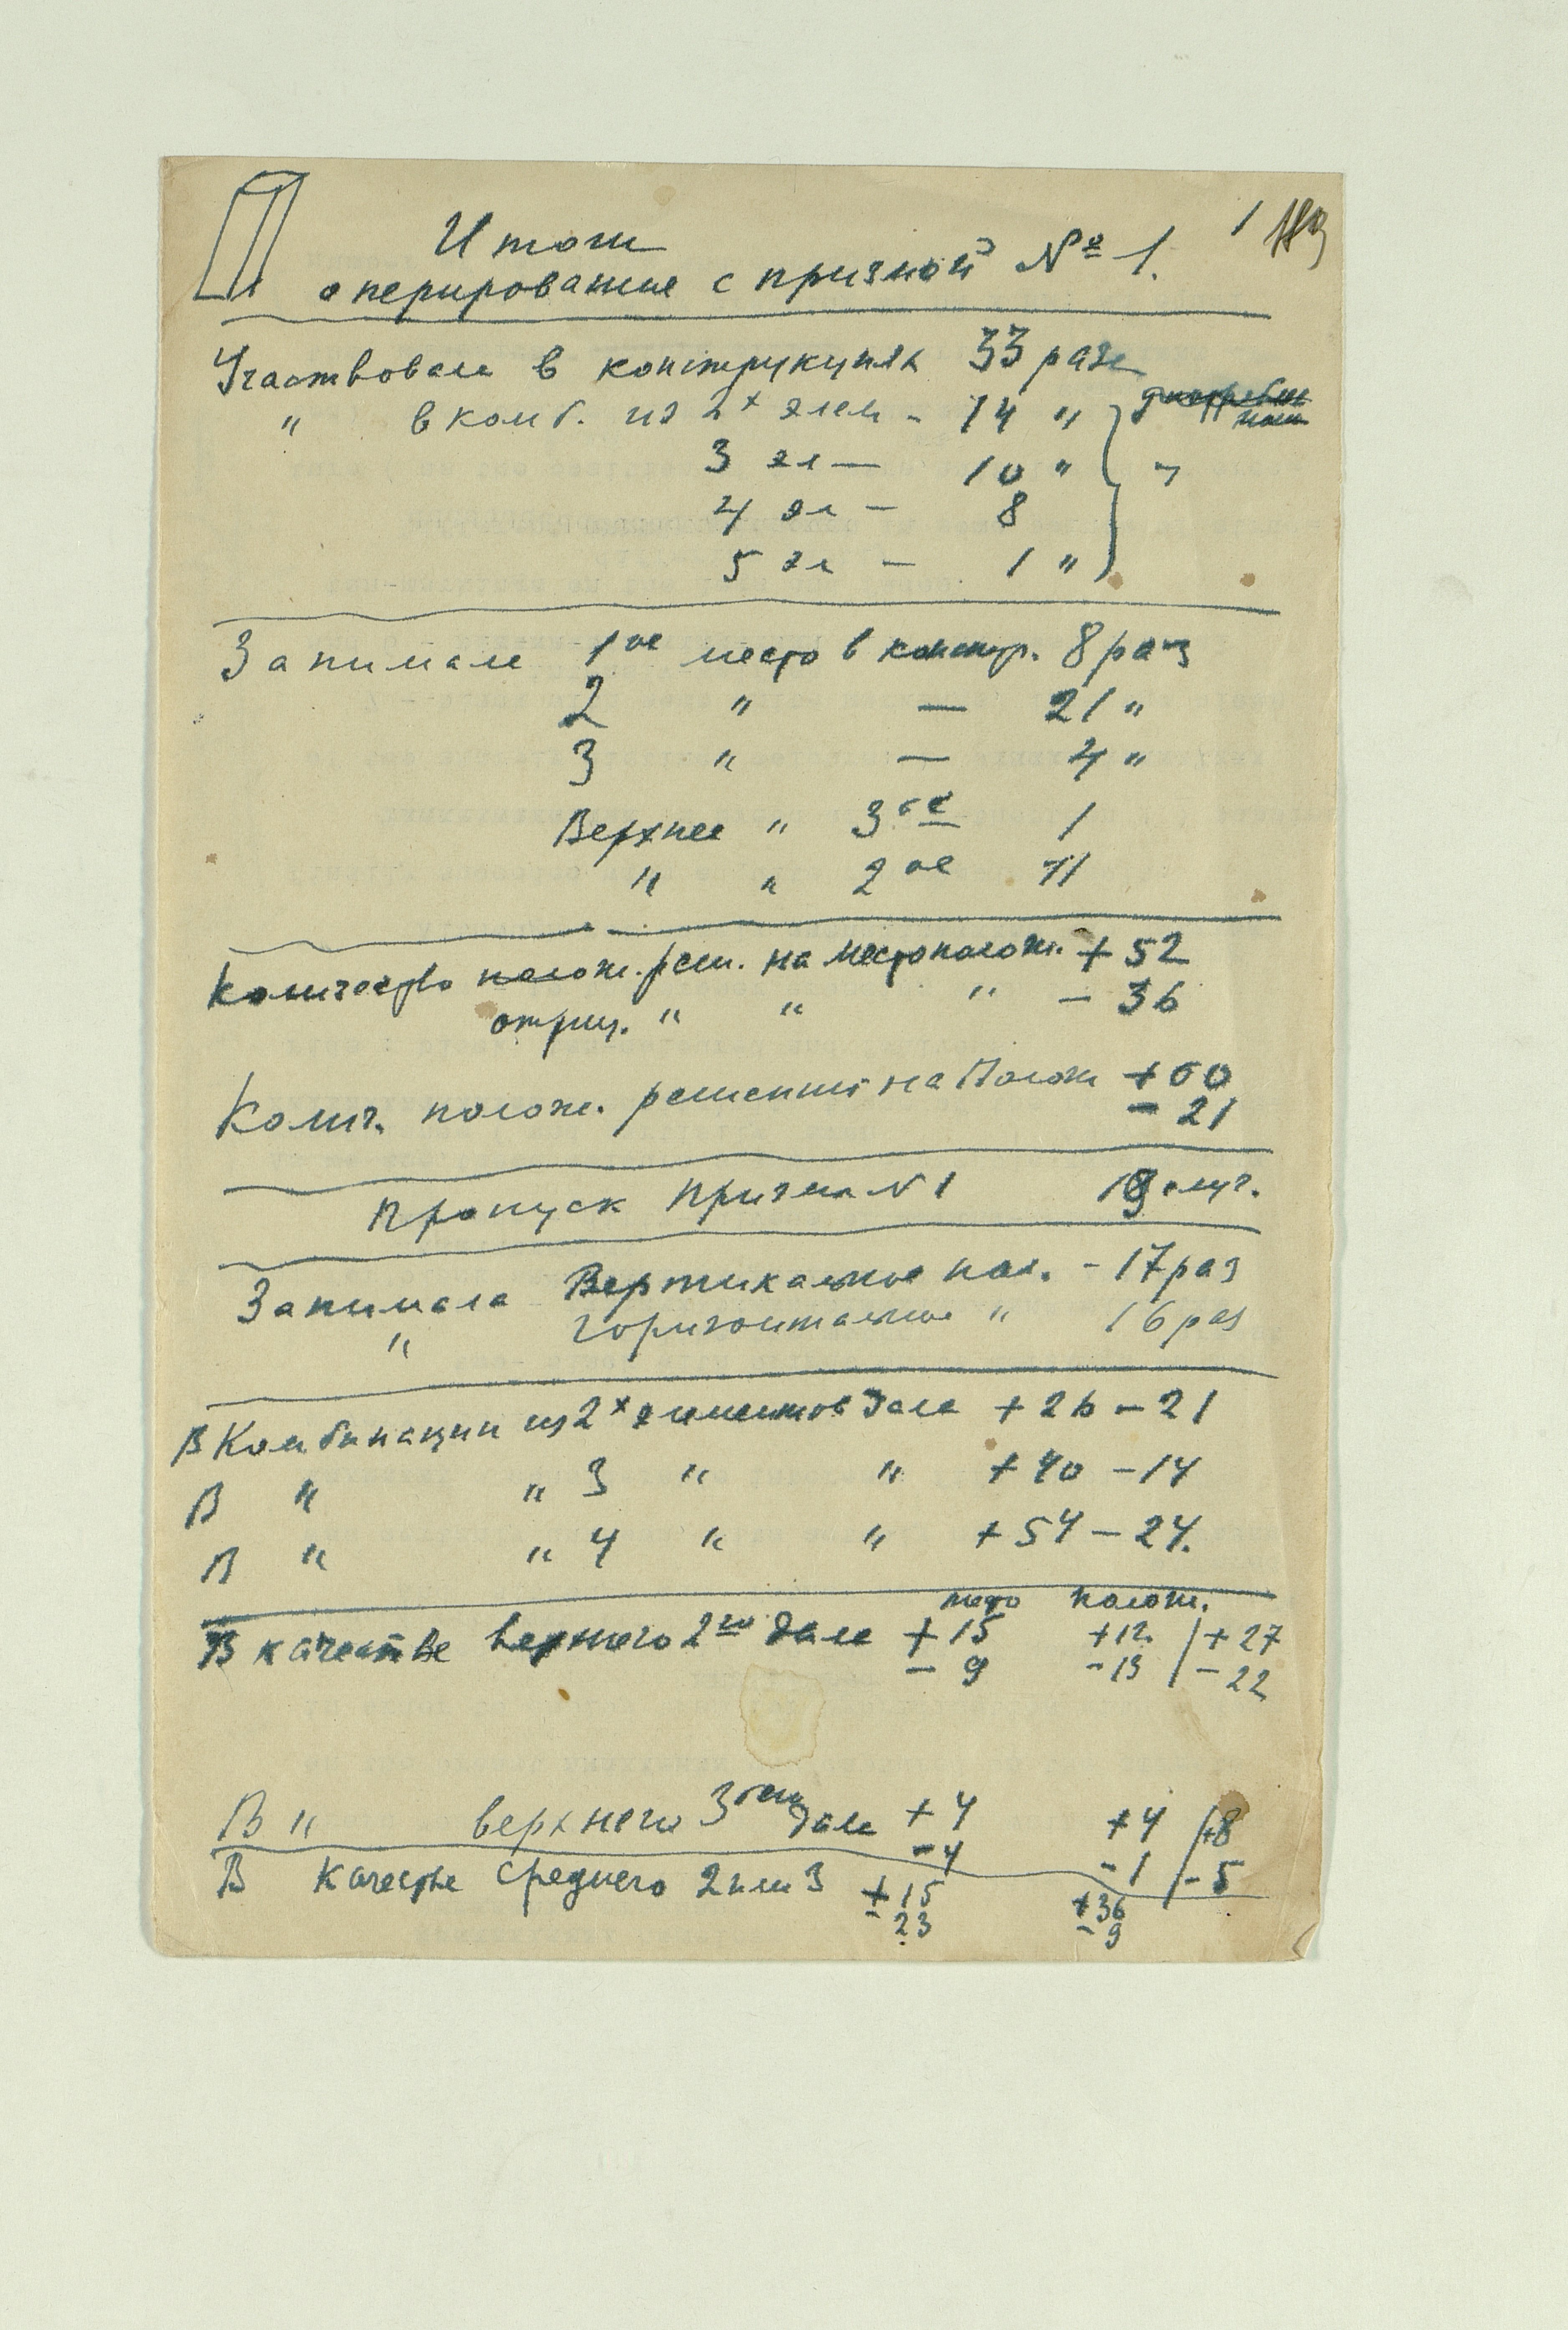 1
Итоги
оперирование с призмой № 1.
Участвовала в конструкциях 33 раза
" в комб. из 2х элем - 14 "
3 эл — 10 " "
4 эл — 8
5 эл — 1 "
Занимала 1ое место в констр. 8 раз
2 " — 21 "
3 " — 4 "
Верхнее " 3ое 1
" " 2ое 11
Количество полож. реш. на местополож. + 52
отриц. " " " — 36
Колич. полож. решений на Полож + 60
- 21
Пропуск Призма N 1 случ.
Занимала Вертикальное пол. - 17 раз
" горизонтальное " 16 раз
В Комбинации из 2х элементов Дала + 26 - 21
В " " 3 " " + 40 - 14
В " " 4 " " + 54 - 24.
место полож.
В качестве верхнего 2го дала + 15 +12 / + 27
- 9 - 13 / - 22
В " верхнего 3 дала + 4 +4 / +8
- 4 - 1 / - 5
В качестве среднего 2 или 3 + 15 +36
- 23 - 9